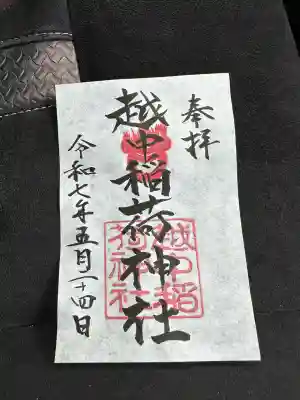 奉拝
越中稲荷神社
越中稲
荷神社
令和七年五月二十四日